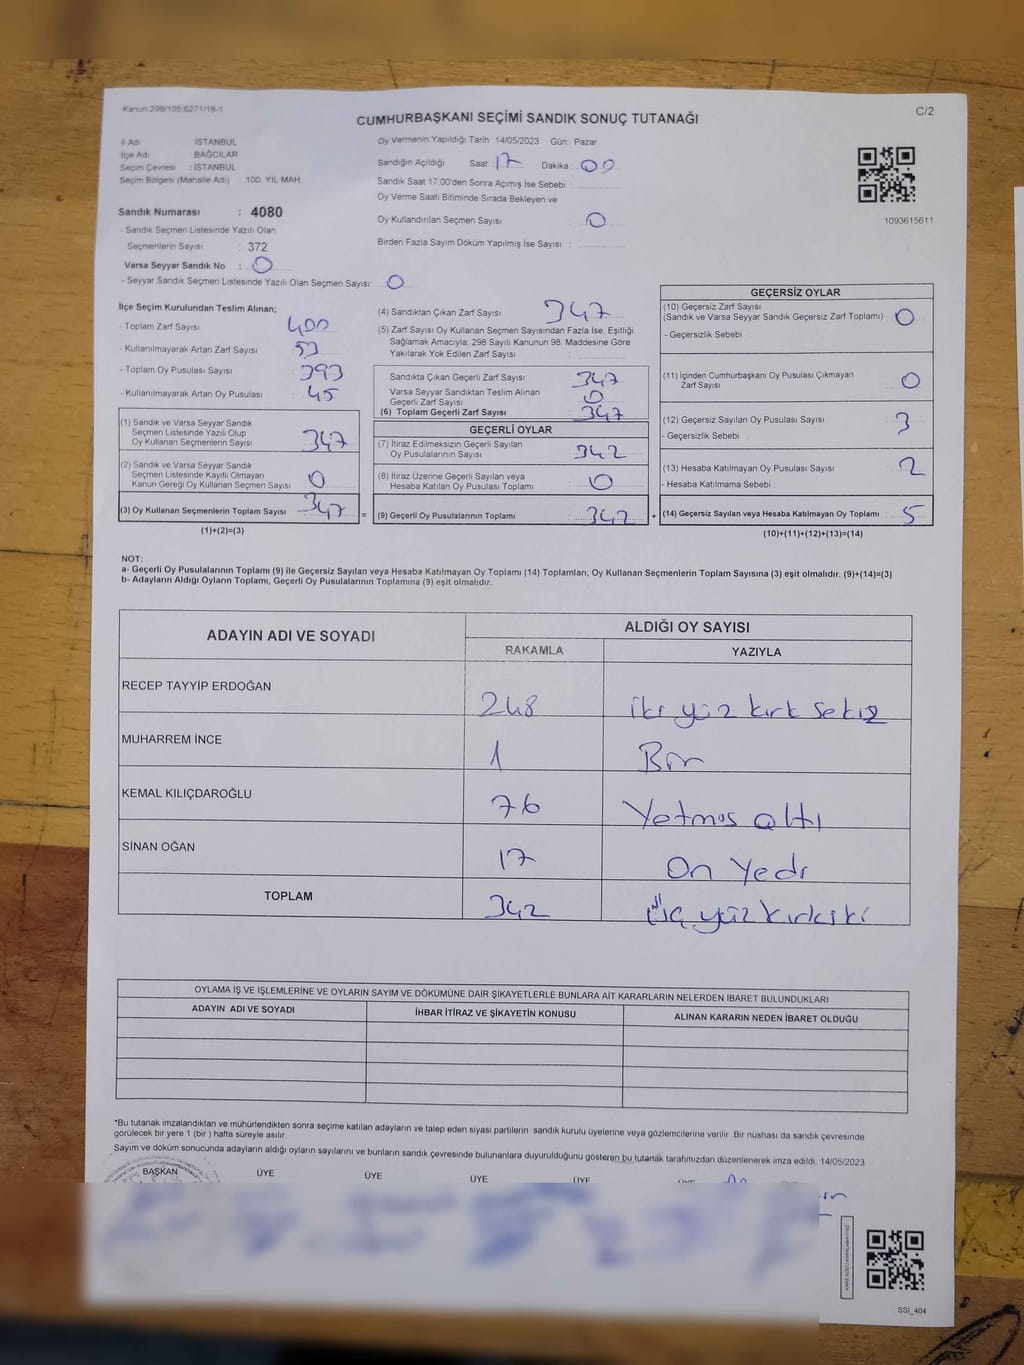 Kanun:298/105:6271/16-1
C/2
CUMHURBAŞKANI SEÇİMİ SANDIK SONUÇ TUTANAĞI
İl Adı : İSTANBUL
İlçe Adı : BAĞCILAR
Seçim Çevresi : İSTANBUL
Seçim Bölgesi (Mahalle Adı) : 100. YIL MAH.
Sandık Numarası : 4080
- Sandık Seçmen Listesinde Yazılı Olan
Seçmenlerin Sayısı : 372
Varsa Seyyar Sandık No : 0
- Seyyar Sandık Seçmen Listesinde Yazılı Olan Seçmen Sayısı: 0
Oy Vermenin Yapıldığı Tarih 14/05/2023 Gün : Pazar
Sandığın Açıldığı Saat 17 Dakika : 00
Sandık Saat 17.00'den Sonra Açımış İse Sebebi :
Oy Verme Saati Bitiminde Sırada Bekleyen ve
Oy Kullandırılan Seçmen Sayısı : 0
Birden Fazla Sayım Döküm Yapılmış İse Sayısı :
1093615611
İlçe Seçim Kurulundan Teslim Alınan;
- Toplam Zarf Sayısı 400
- Kullanılmayarak Artan Zarf Sayısı 53
- Toplam Oy Pusulası Sayısı 393
- Kullanılmayarak Artan Oy Pusulası 45
(1) Sandık ve Varsa Seyyar Sandık
Seçmen Listesinde Yazılı Olup
Oy Kullanan Seçmenlerin Sayısı 347
(2) Sandık ve Varsa Seyyar Sandık
Seçmen Listesinde Kayıtlı Olmayan
Kanun Gereği Oy Kullanan Seçmen Sayısı 0
(3) Oy Kullanan Seçmenlerin Toplam Sayısı 347
(1)+(2)=(3)
(4) Sandıktan Çıkan Zarf Sayısı 347
(5) Zarf Sayısı Oy Kullanan Seçmen Sayısından Fazla İse, Eşitliği
Sağlamak Amacıyla; 298 Sayılı Kanunun 98. Maddesine Göre
Yakılarak Yok Edilen Zarf Sayısı :
Sandıkta Çıkan Geçerli Zarf Sayısı 347
Varsa Seyyar Sandıktan Teslim Alınan
Geçerli Zarf Sayısı 0
(6) Toplam Geçerli Zarf Sayısı 347
GEÇERLİ OYLAR
(7) İtiraz Edilmeksizin Geçerli Sayılan
Oy Pusulalarının Sayısı 342
(8) İtiraz Üzerine Geçerli Sayılan veya
Hesaba Katılan Oy Pusulası Toplamı 0
= (9) Geçerli Oy Pusulalarının Toplamı : 342 +
GEÇERSİZ OYLAR
(10) Geçersiz Zarf Sayısı
(Sandık ve Varsa Seyyar Sandık Geçersiz Zarf Toplamı) 0
- Geçersizlik Sebebi :
(11) İçinden Cumhurbaşkanı Oy Pusulası Çıkmayan
Zarf Sayısı 0
(12) Geçersiz Sayılan Oy Pusulası Sayısı 3
- Geçersizlik Sebebi :
(13) Hesaba Katılmayan Oy Pusulası Sayısı 2
- Hesaba Katılmama Sebebi :
(14) Geçersiz Sayılan veya Hesaba Katılmayan Oy Toplamı : 5
(10)+(11)+(12)+(13)=(14)
NOT:
a- Geçerli Oy Pusulalarının Toplamı (9) ile Geçersiz Sayılan veya Hesaba Katılmayan Oy Toplamı (14) Toplamları, Oy Kullanan Seçmenlerin Toplam Sayısına (3) eşit olmalıdır. (9)+(14)=(3)
b- Adayların Aldığı Oyların Toplamı, Geçerli Oy Pusulalarının Toplamına (9) eşit olmalıdır.
ADAYIN ADI VE SOYADI ALDIĞI OY SAYISI
RAKAMLA YAZIYLA
RECEP TAYYİP ERDOĞAN 248 iki yüz kırk sekiz
MUHARREM İNCE 1 Bir
KEMAL KILIÇDAROĞLU 76 Yetmış altı
SİNAN OĞAN 17 On Yedi
TOPLAM 342 üç yüz kırk iki
OYLAMA İŞ VE İŞLEMLERİNE VE OYLARIN SAYIM VE DÖKÜMÜNE DAİR ŞİKAYETLERLE BUNLARA AİT KARARLARIN NELERDEN İBARET BULUNDUKLARI
ADAYIN ADI VE SOYADI İHBAR İTİRAZ VE ŞİKAYETİN KONUSU ALINAN KARARIN NEDEN İBARET OLDUĞU
*Bu tutanak imzalandıktan ve mühürlendikten sonra seçime katılan adayların ve talep eden siyasi partilerin sandık kurulu üyelerine veya gözlemcilerine verilir. Bir nüshası da sandık çevresinde
görülecek bir yere 1 (bir ) hafta süreyle asılır.
Sayım ve döküm sonucunda adayların aldığı oyların sayılarını ve bunların sandık çevresinde bulunanlara duyurulduğunu gösteren bu tutanak tarafımızdan düzenlenerek imza edildi. 14/05/2023
BAŞKAN ÜYE ÜYE ÜYE ÜYE
SSI_404